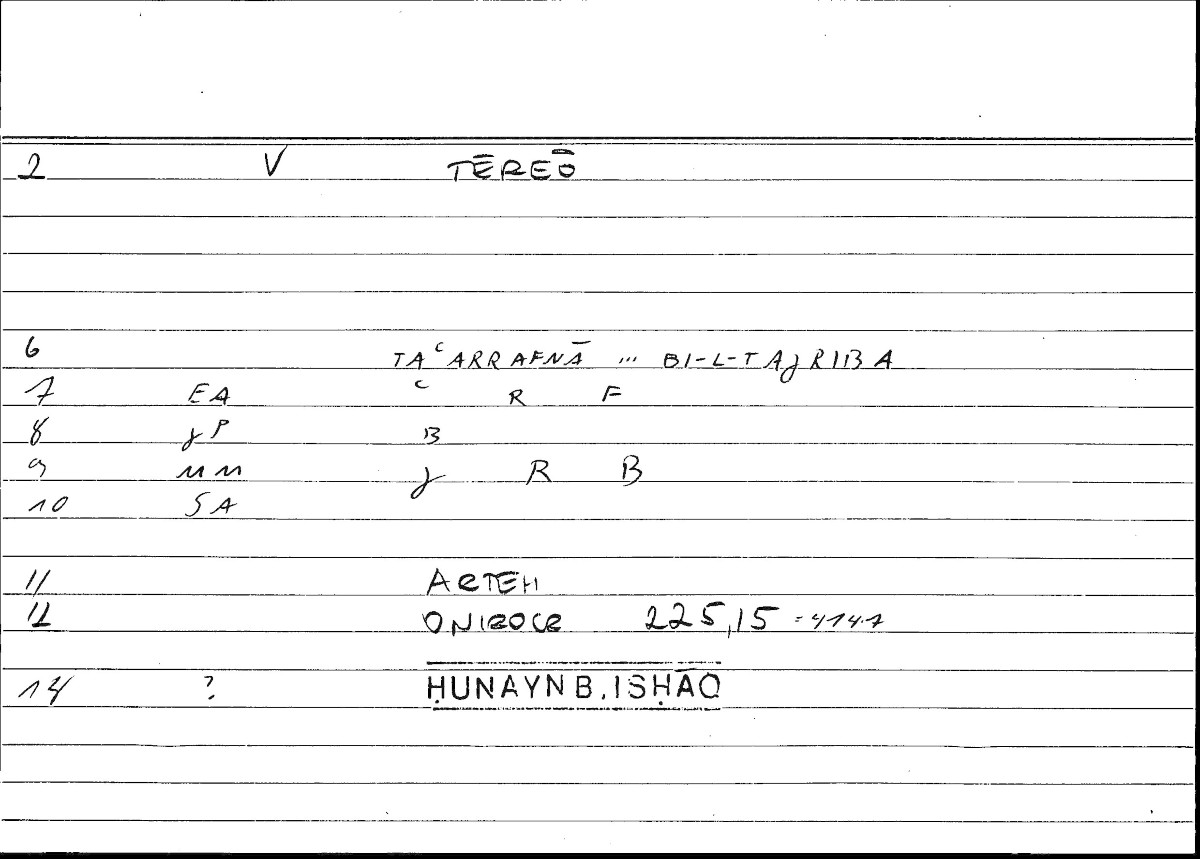 2 V TĒREŌ
6 TAʿARRAFNĀ ... BI-L-TAJRIBA
7 EA ʿ R F
8 JP B
9 MM J R B
10 SA
11 ARTEM
12 ONIROCR 225,15 =
14 ? ḤUNAYN B. ISḤĀQ